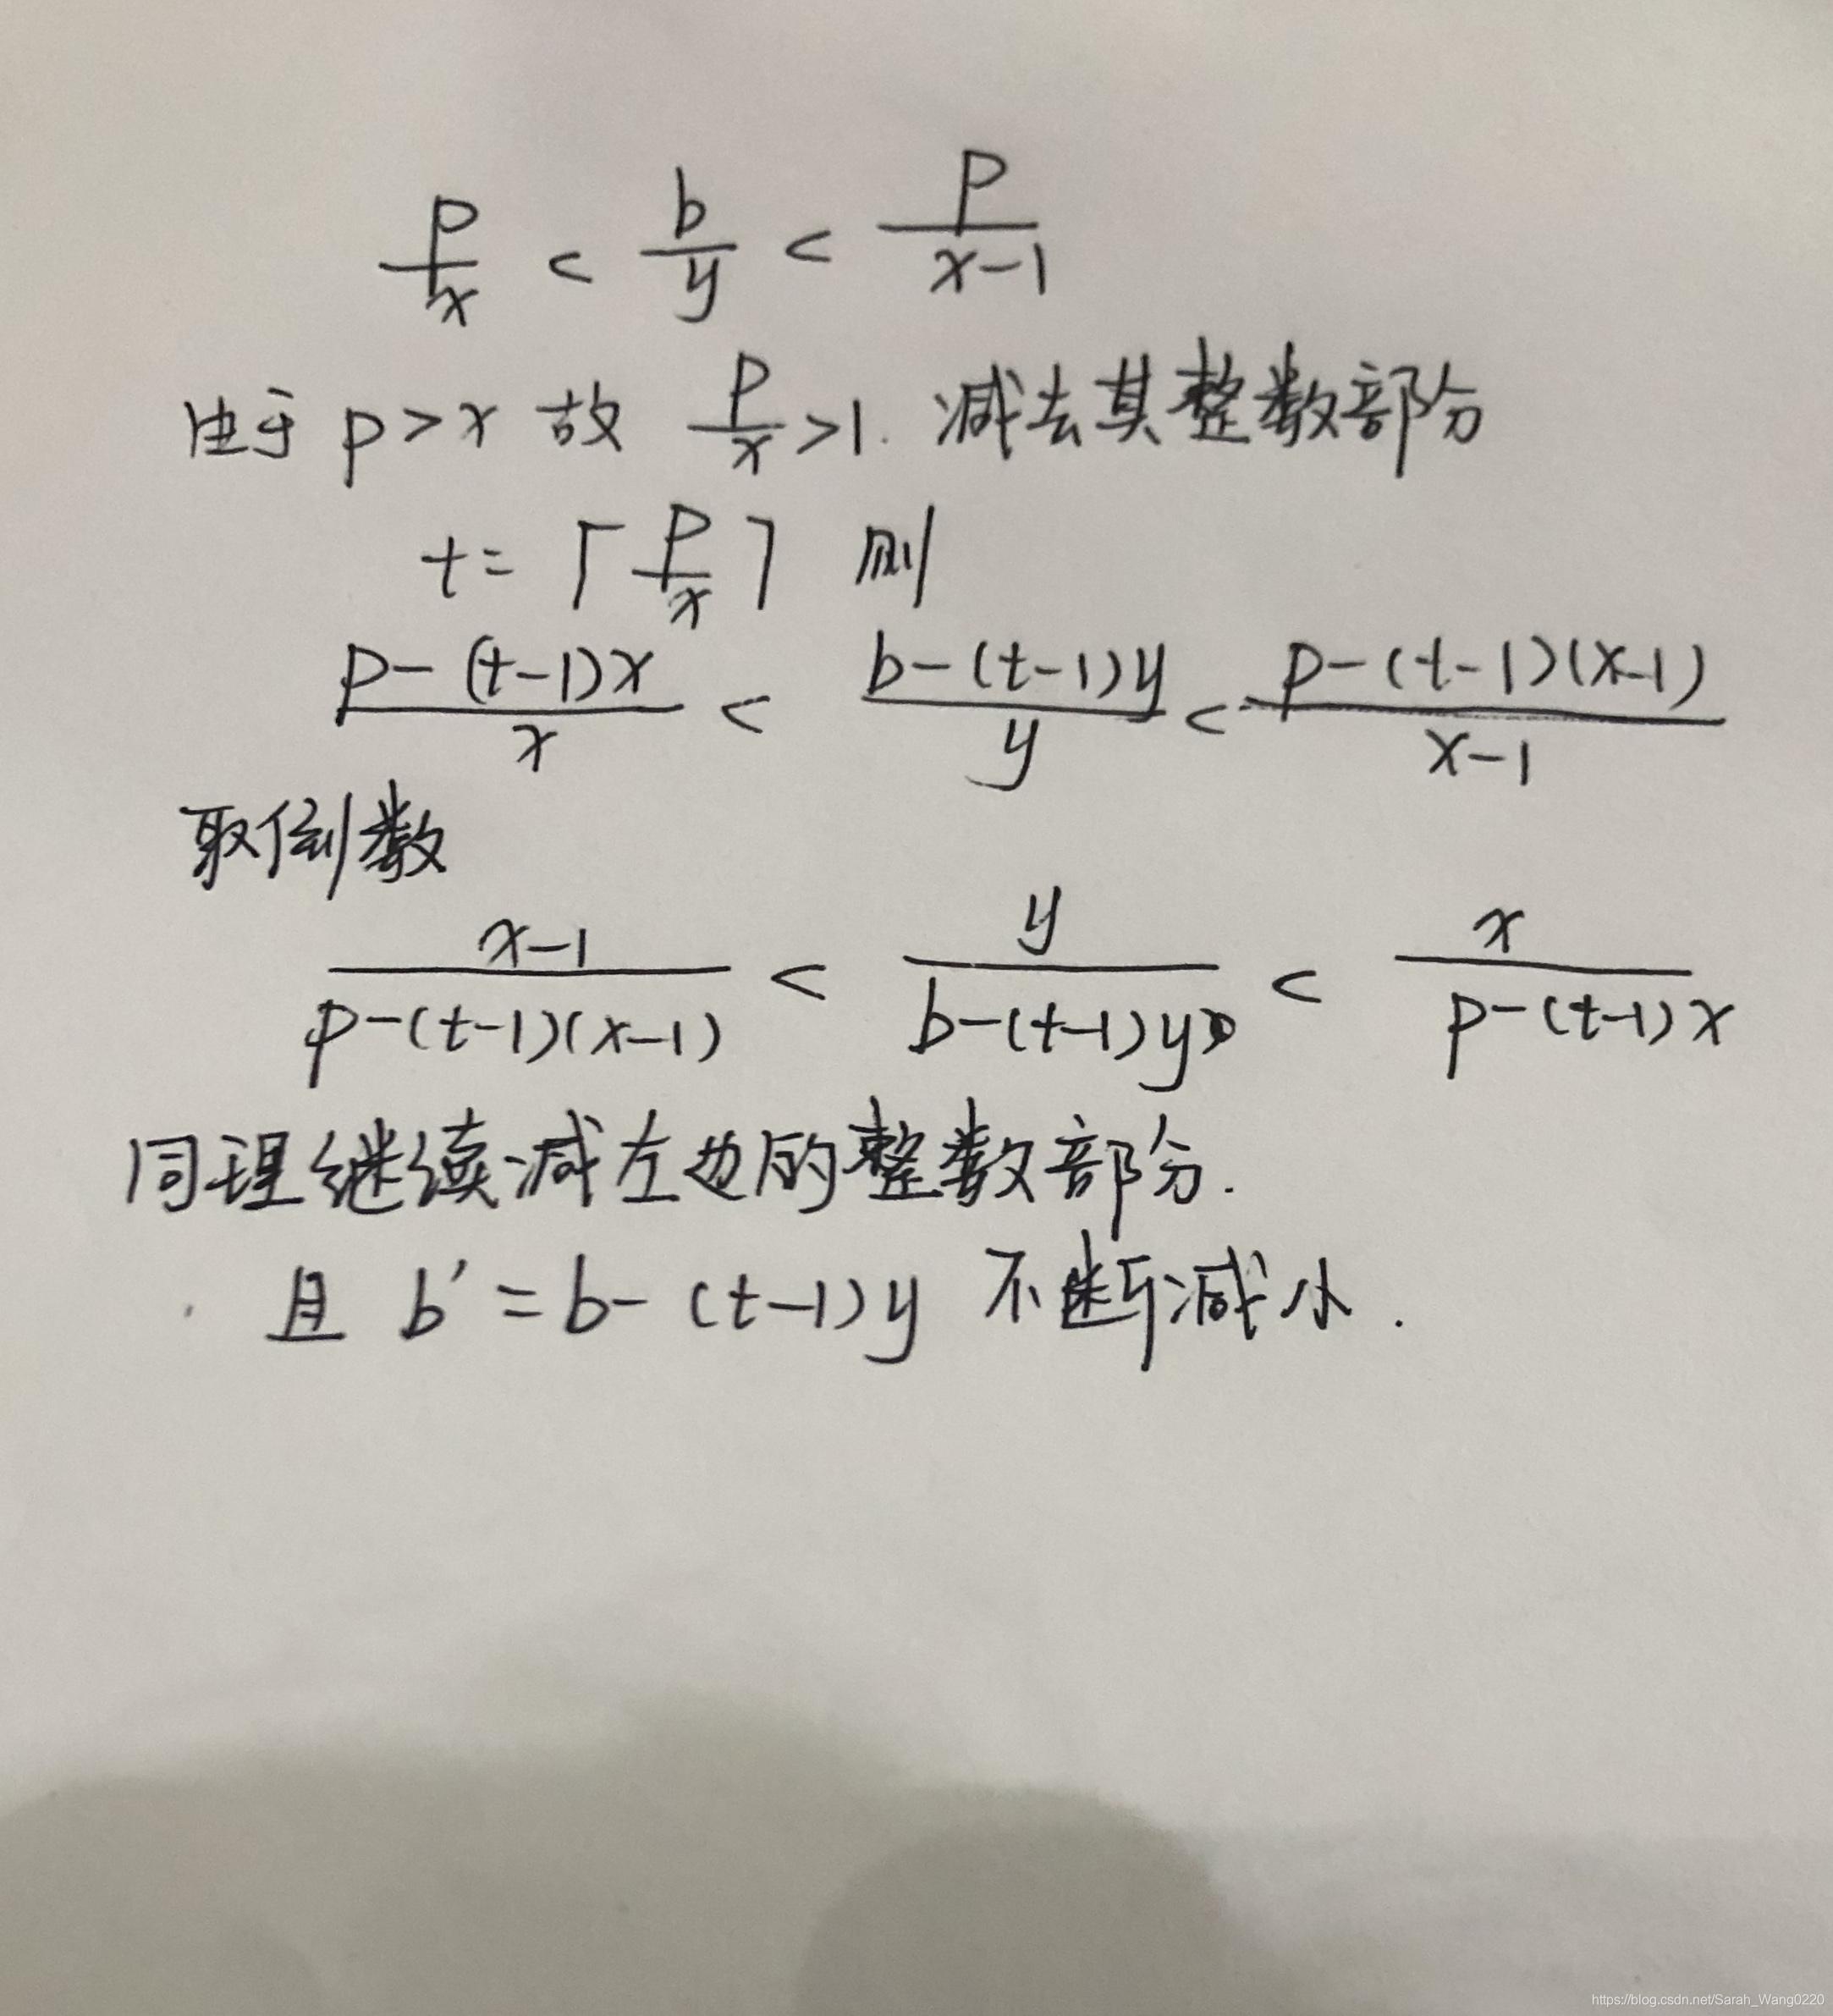 p/x < b/y < p/(x-1)
由于 p>x 故 p/x >1. 减去其整数部分
t= ⌈p/x⌉ 则
(p-(t-1)x)/x < (b-(t-1)y)/y < (p-(t-1)(x-1))/(x-1)
取倒数
(x-1)/(p-(t-1)(x-1)) < y/(b-(t-1)y) < x/(p-(t-1)x)
同理继续减左边的整数部分.
且 b' = b-(t-1)y 不断减小.
https://blog.csdn.net/Sarah_Wang0220